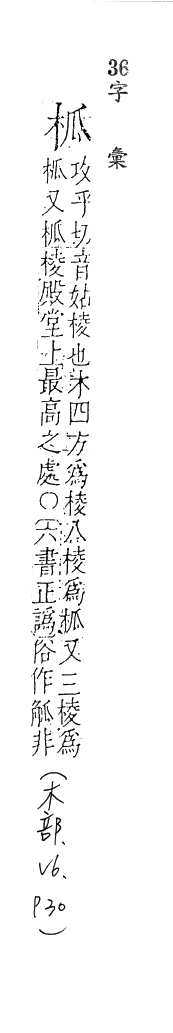 36
字彙
柧
攻乎切音姑棱也木四方爲棱八棱爲柧又三棱爲
柧又柧棱殿堂上最高之處○六書正譌俗作觚非
(木部、
V6、
P30)